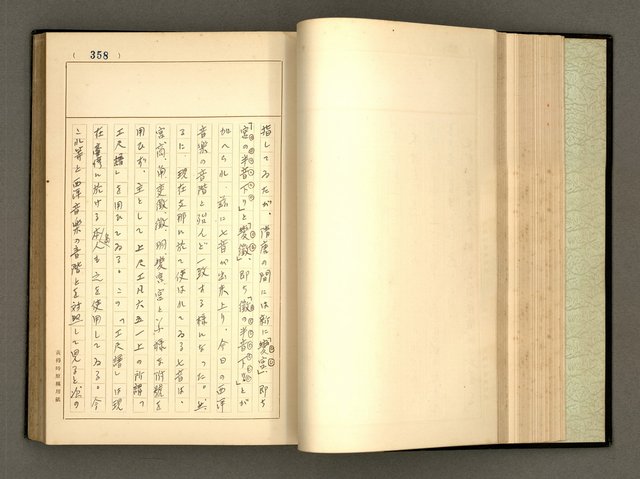 ( 358 )
指してゐたが、隋唐の間には新に「變宮」、即ち
「宮の半音下り」と「變徵」、即ち「徵の半音下り」とが
加へられ、茲に七音が出來上り、今日の西洋
音樂の音階と殆んど一致する様になつた。然
るに、現在支那に於て使はれてゐる七音は、
宮商角變徵徵羽變宮宮と云ふ様な符號を
用ひず、主として上尺工凡六五一上の所謂「
工尺譜」を用ひてゐる。この「工尺譜」は現
在臺灣に於ける本島人も之を使用してゐる。今
これ等と西洋音樂の音階とを対照して見ると次の
黃得時原稿用紙